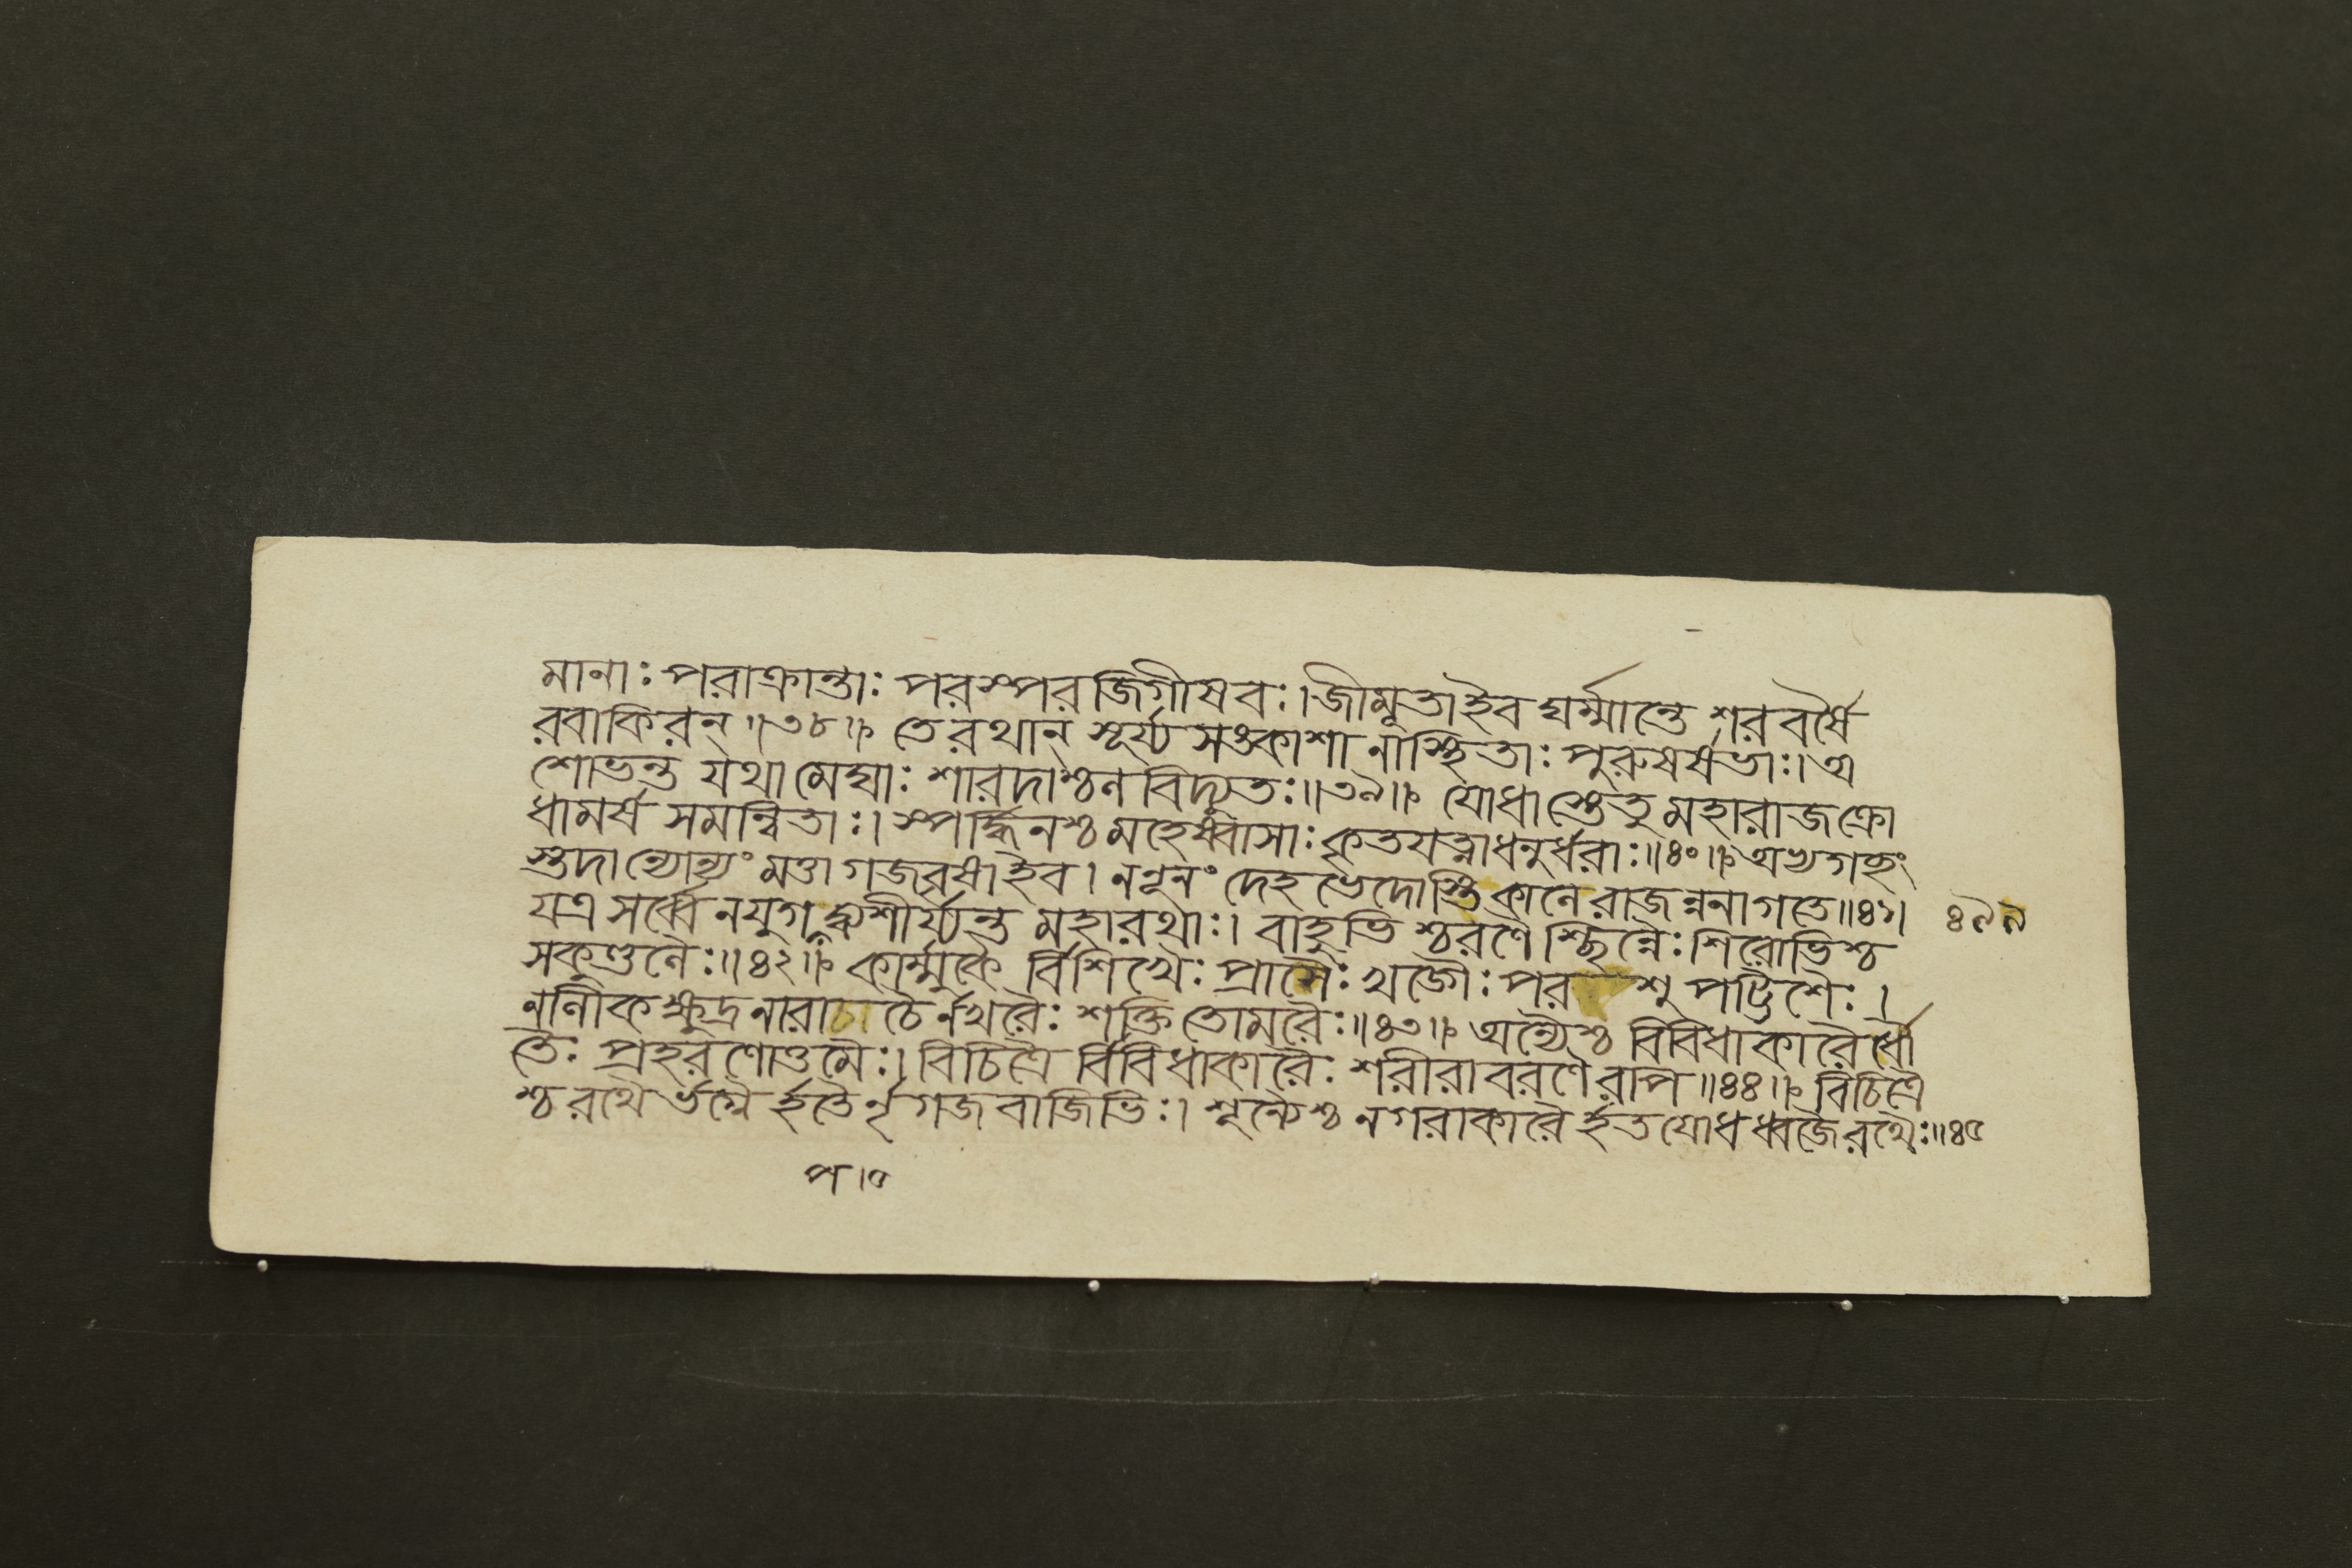 মানাঃ পরাক্রান্তাঃ পরস্পর জিগীষবঃ। জীমূতাইব ঘর্ম্মান্তে শরবর্ষৈ
রবাকিরন্॥৩৮॥ তে রথান্ সূর্য্য সঙ্কাশা নাস্থিতাঃ পুরুষর্ষভাঃ। অ
শোভন্ত যথা মেঘাঃ শারদাশ্চন বিদ্যুতঃ॥৩৯॥ যোধাস্তেতু মহারাজ ক্রো
ধামর্ষ সমন্বিতাঃ। স্পর্দ্ধিনশ্চ মহেষ্বাসাঃ কৃতযত্নাধনুর্ধরাঃ॥৪০॥ অভ্যগচ্ছং
স্তদান্যোন্যং মত্তা গজবৃষাইব। ন নূনং দেহ ভেদোস্তি কালে রাজন্ননাগতে॥৪১।
যত্র সর্ব্বে নযুগপদ্ব্যশীর্য্যন্ত মহারথাঃ। বাহুভি শ্চরণৈ শ্ছিন্নৈঃ শিরোভিশ্চ
সকুণ্ডলৈঃ॥৪২॥ কার্ম্মুকৈ র্বিশিখৈঃ প্রাসৈঃ খড়্গৈঃ পর শু পট্টিশৈঃ।
নালীক ক্ষুদ্র নারাচা চৈর্নখরৈঃ শক্তি তোমরৈঃ॥৪৩॥ অন্যৈশ্চ বিবিধাকারৈ র্ধৌ
তৈঃ প্রহরণোত্তমৈঃ। বিচিত্রৈ র্বিবিধাকারৈঃ শরীরাবরণৈ রপি॥৪৪॥ বিচিত্রৈ
শ্চ রথৈ র্ভগ্নৈ র্হতৈর্নৃ গজ বাজিভিঃ। শূন্যৈশ্চ নগরাকারৈ র্হত যোধ ধ্বজৈ রথৈঃ॥৪৫
৪৯৯
প।০